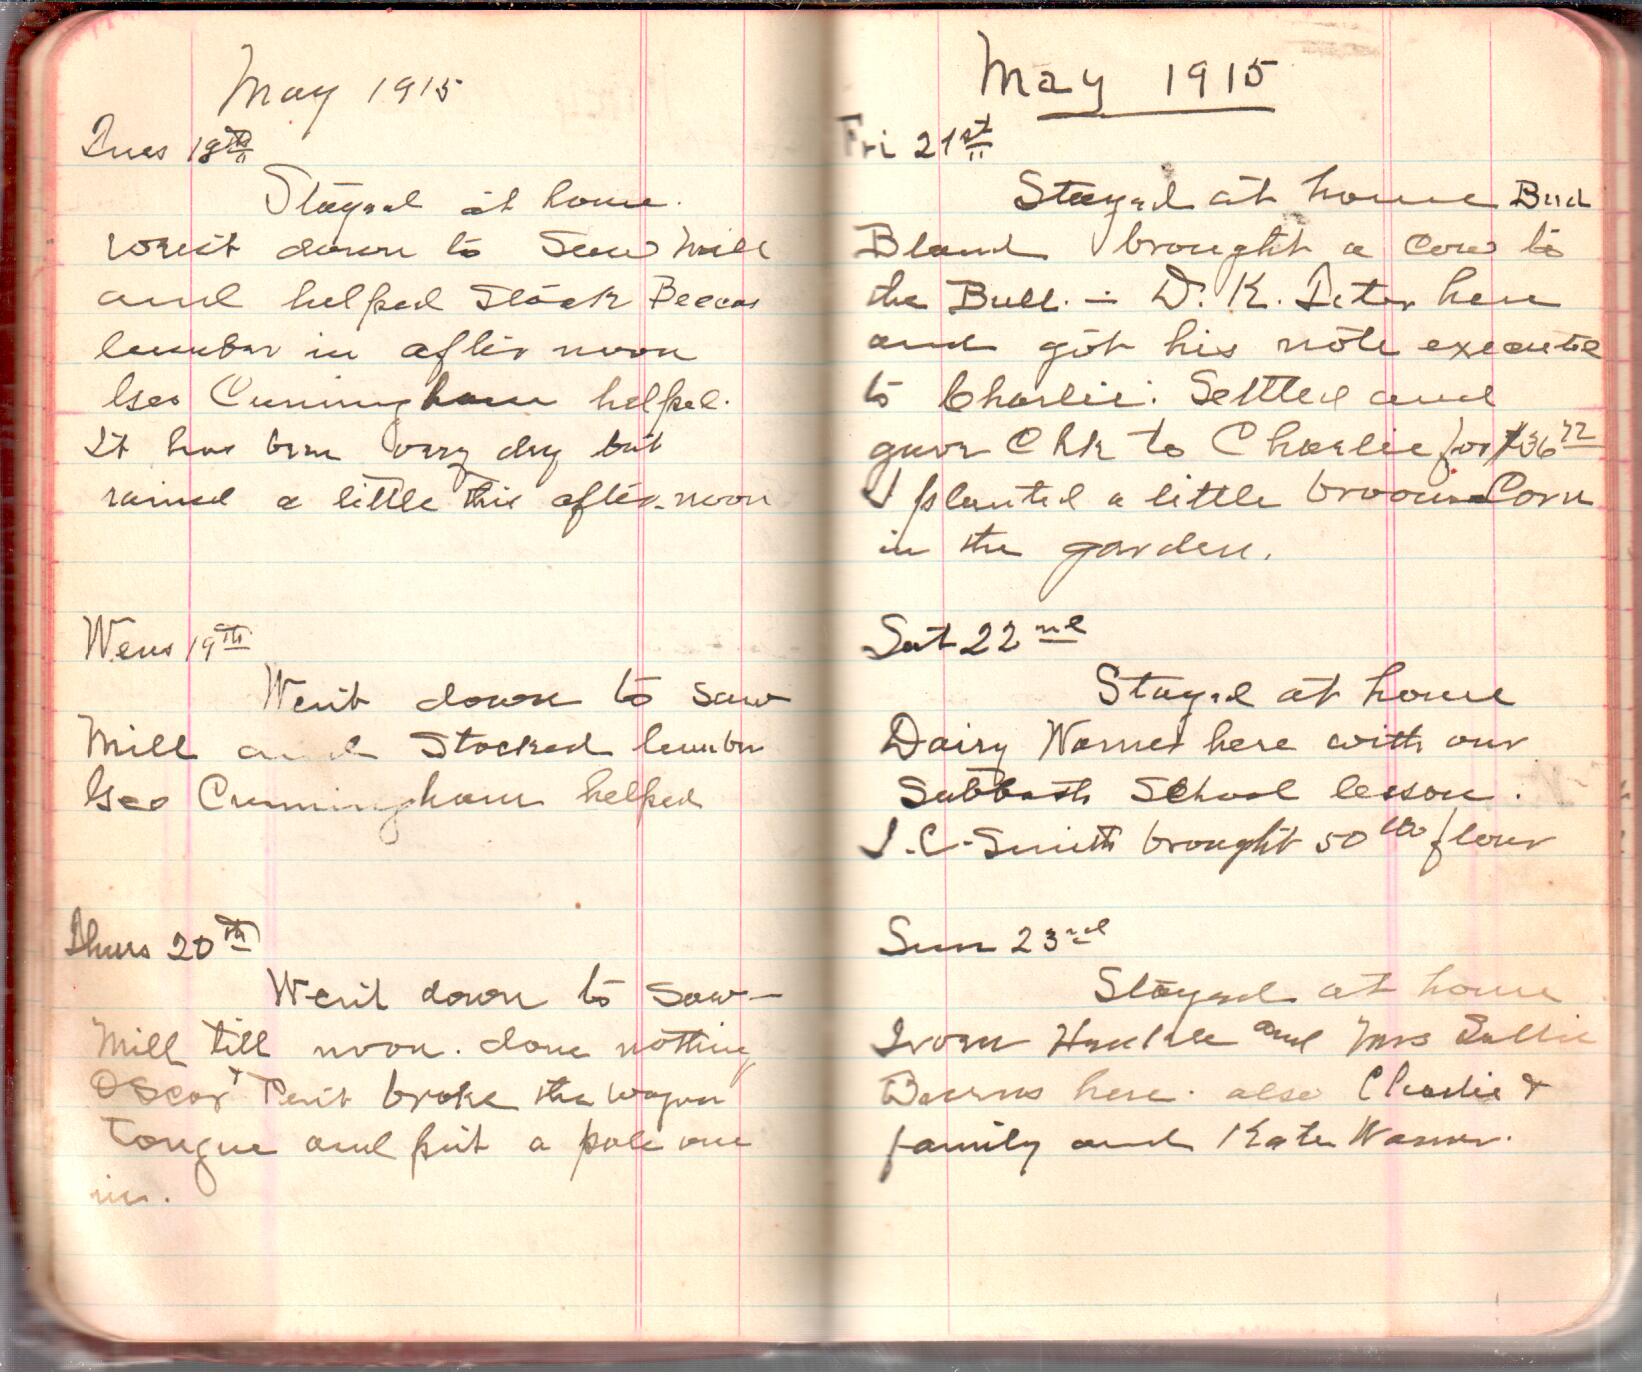 May 1915
Tues 18th
Stayed at home.
went down to Saw Mill
and helped Stack
lumber in after noon
Geo Cunningham helped.
It has been very dry but
rained a little this after-noon
Wens 19th
Went down to saw
Mill and Stacked lumber
Geo Cunningham helped
Thurs 20th
Went down to saw-
Mill till noon. done nothing
Oscar & broke the wagon
Tongue and put a pole one
in.
May 1915
Fri 21st
Stayed at home Bud
Bland brought a cow to
the Bull. - D. K. Teter here
and got his note executed
to Charlie. Settled and
gave Chk to Charlie for $36
I planted a little broom Corn
in the garden.
Sat 22nd
Stayed at home
Dairy Warner here with our
Sabbath School lesson.
J.C. Smith brought 50 lb flour
Sun 23rd
Stayed at home
and Mrs Sallie
here. also Charlie &
family and Kate Warner.